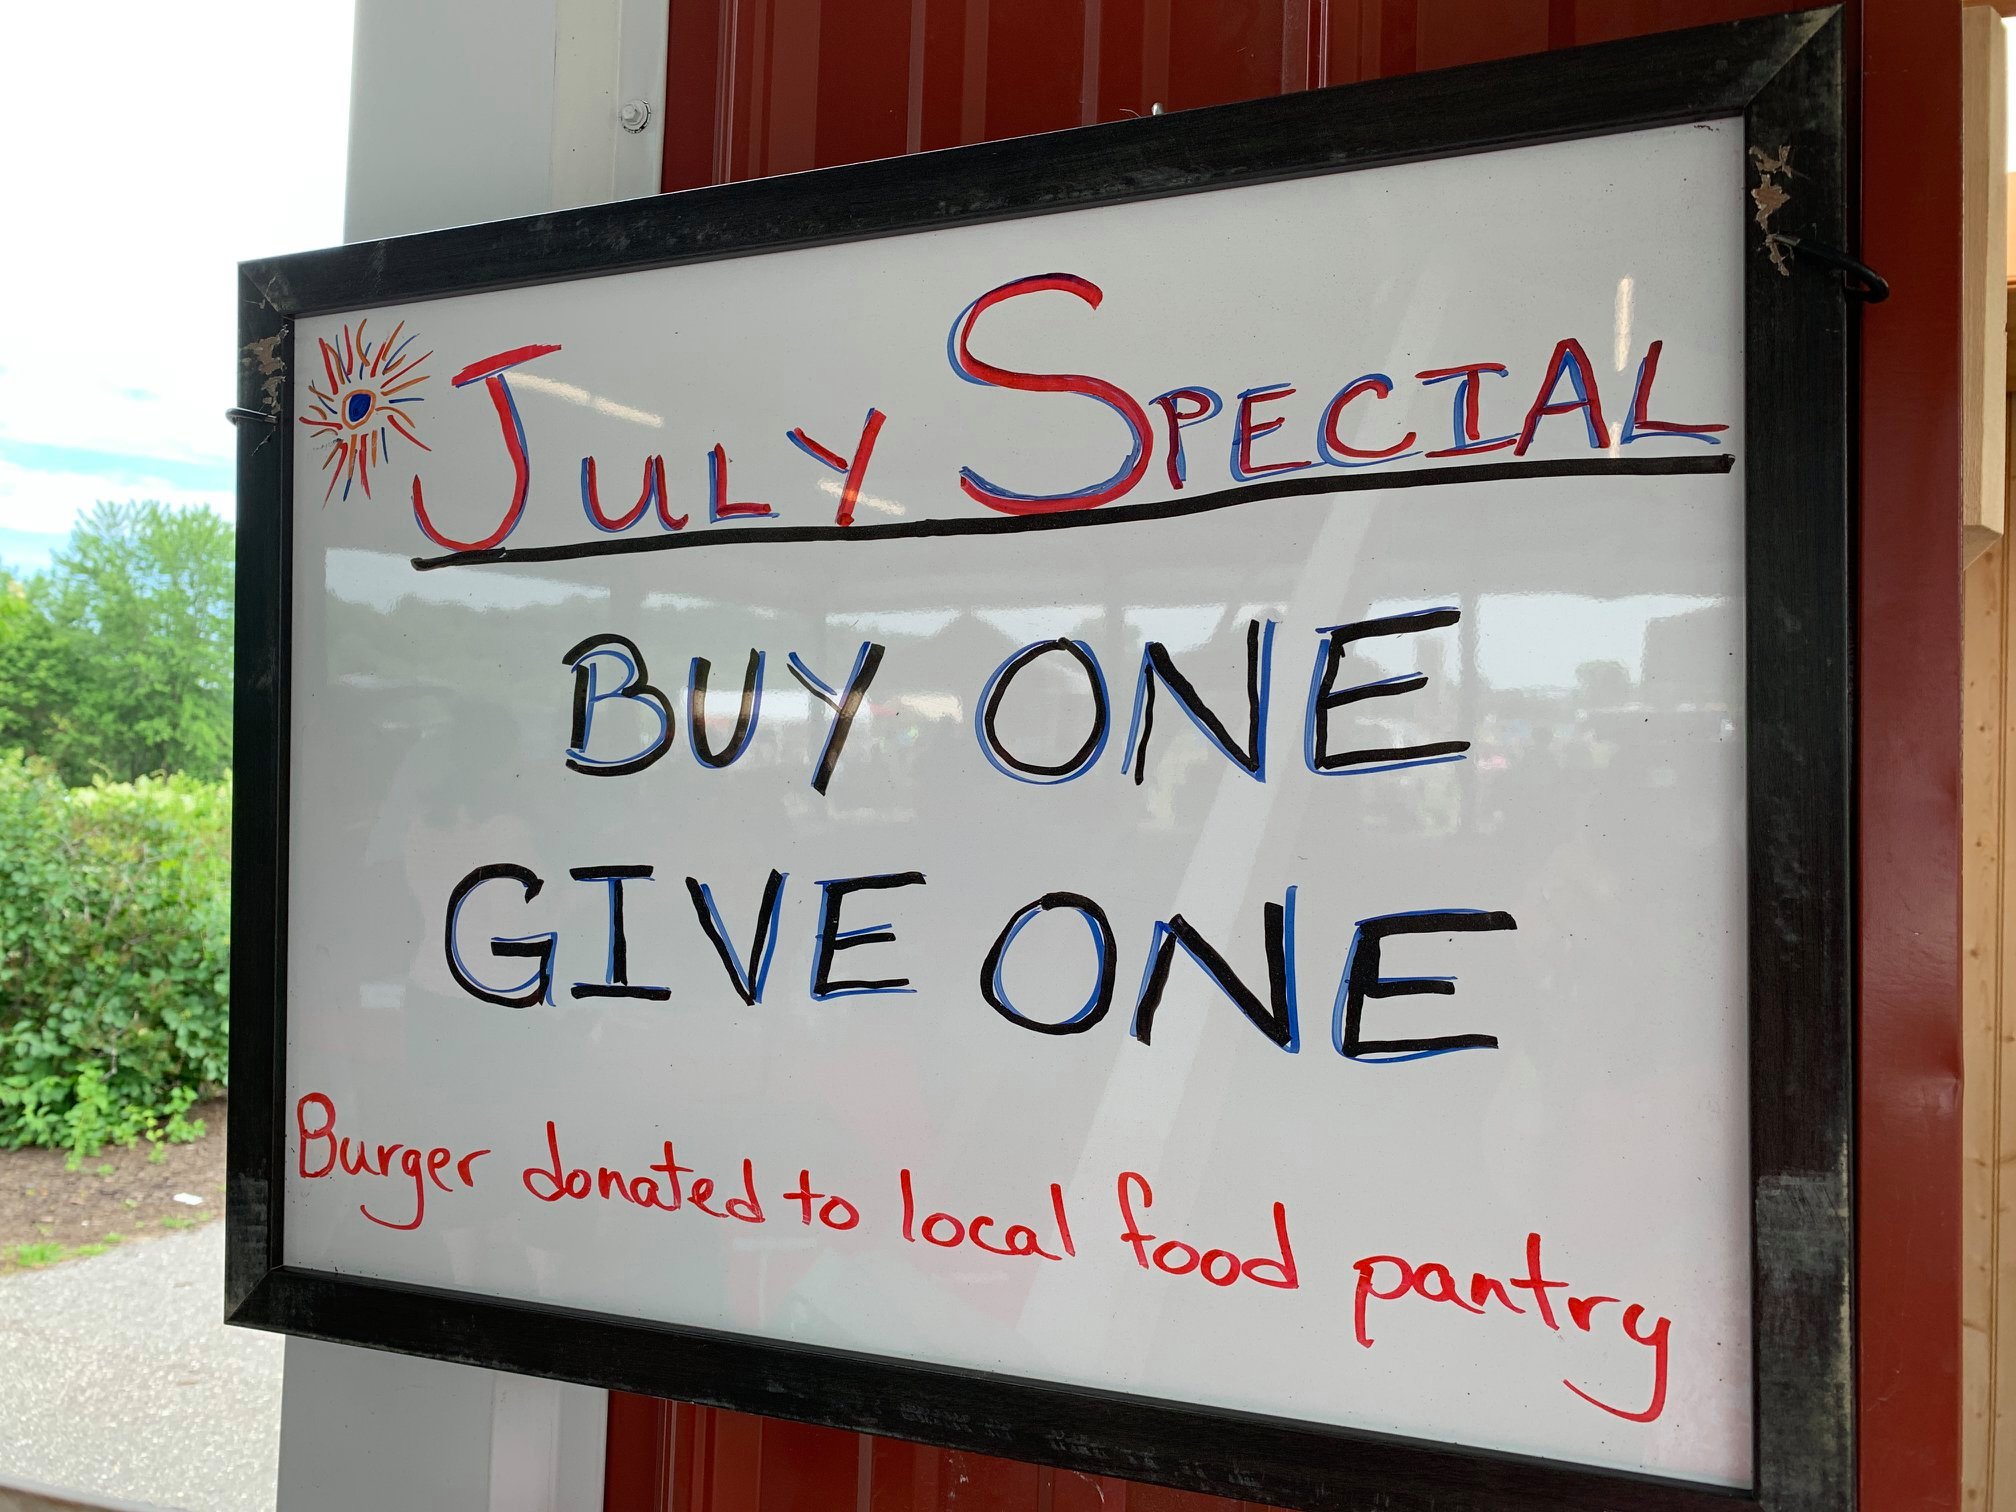 JULY SPECIAL
BUY ONE
GIVE ONE
Burger donated to local food pantry